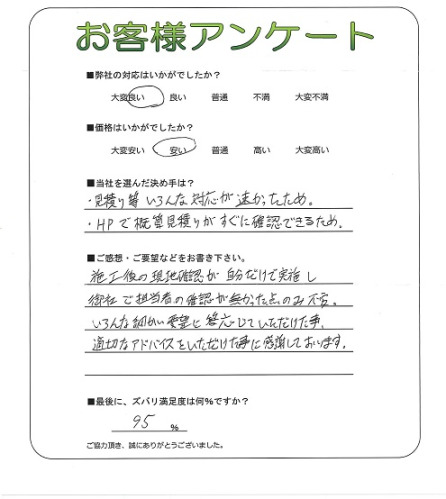 お客様アンケート
■弊社の対応はいかがでしたか？
大変良い 良い 普通 不満 大変不満
■価格はいかがでしたか？
大変安い 安い 普通 高い 大変高い
■当社を選んだ決め手は？
・見積り等 いろんな対応が速かったため。
・HPで概算見積りがすぐに確認できるため。
■ご感想・ご要望などをお書き下さい。
施工後の現地確認が自分だけで実施し
御社で担当者の確認が無かった点のみ不安。
いろんな細かい要望に答応じていただけた事、
適切なアドバイスをいただけた事に感謝しております。
■最後に、ズバリ満足度は何%ですか？
95 %
ご協力頂き、誠にありがとうございました。